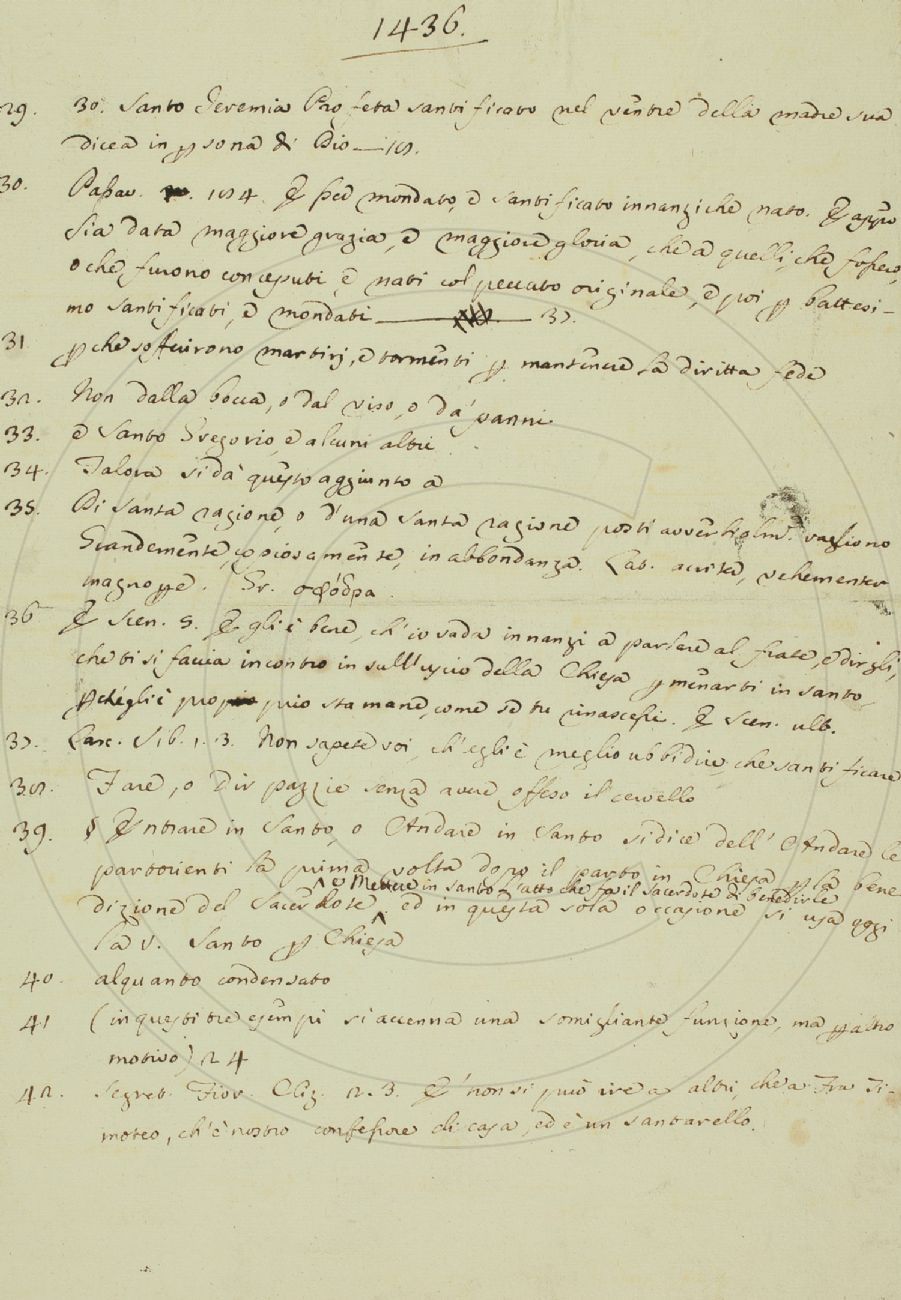 1436.
29. 30. Santo Jeremia Profeta santificato nel ventre della madre sua
dicea in psona di Dio — 18.
30. Passav. 184. E fue mondato, e santificato innanzi che nato. E appo
sia data maggiore grazia, e maggiore gloria, che a quelli, che fossero,
o che furono conceputi, e nati col peccato originale, e poi p battesi-
mo santificati, e mondati — 37.
31 pche soffrirono martirj, e tormenti p mantenere la diritta fede
32. Non dalla bocca, o dal viso, o da' panni
33. e Santo Gregorio, e alcuni altri
34. Talora si dà questo aggiunto a
35. Di santa ragione, o d'una santa ragione posti avverbialm. vagliono
Grandemente, copiosamente, in abbondanza. Lat. acriter, vehementer
magnope. Gr. σφόδρα.
36 E Scen. 5. Egli è bene, ch'io vada innanzi a parlare al frate, e dirgli,
che ti si faccia incontro in sull'uscio della Chiesa p menarti in santo,
pchègli è proprio stamane, come se tu rinascessi. E Scen. ult.
37. Lasc. Sib. 1. 3. Non sapete voi, ch'egli è meglio ubbidire, che santificare
38. Fare, o Dir pazzie senza avere offeso il cervello
39. § Entrare in Santo, o Andare in Santo si dice dell'Andare le
partorienti la prima volta dopo il parto in Chiesa p la bene
e Mettere in santo L'atto che fa il sacerdote di benedirle
dizione del Sacerdote, ed in questa sola occasione si usa oggi
la v. Santo p Chiesa
40. alquanto condensato
41 (in questi tre esempi si accenna una somigliante funzione, ma p altro
motivo) 24
42. Segret. Fior. Cliz. 2. 3. E' non si può ire a altri, che a Fra Ti-
moteo, ch'è nostro confessore di casa, ed è un santarello.